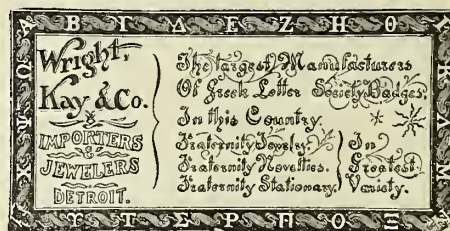 Α Β Γ Δ Ε Ζ Η Θ Ι
Wright,
Kay & Co.
IMPORTERS
&
JEWELERS
DETROIT.
The largest Manufacturers
Of Greek Letter Society Badges.
In this Country.
Fraternity Jewelry.
Fraternity Novelties.
Fraternity Stationary.
In
Greatest
Variety.
Κ Λ Μ
Ν Ξ Ο Π Ρ Σ Τ Υ
Φ Χ Ψ Ω